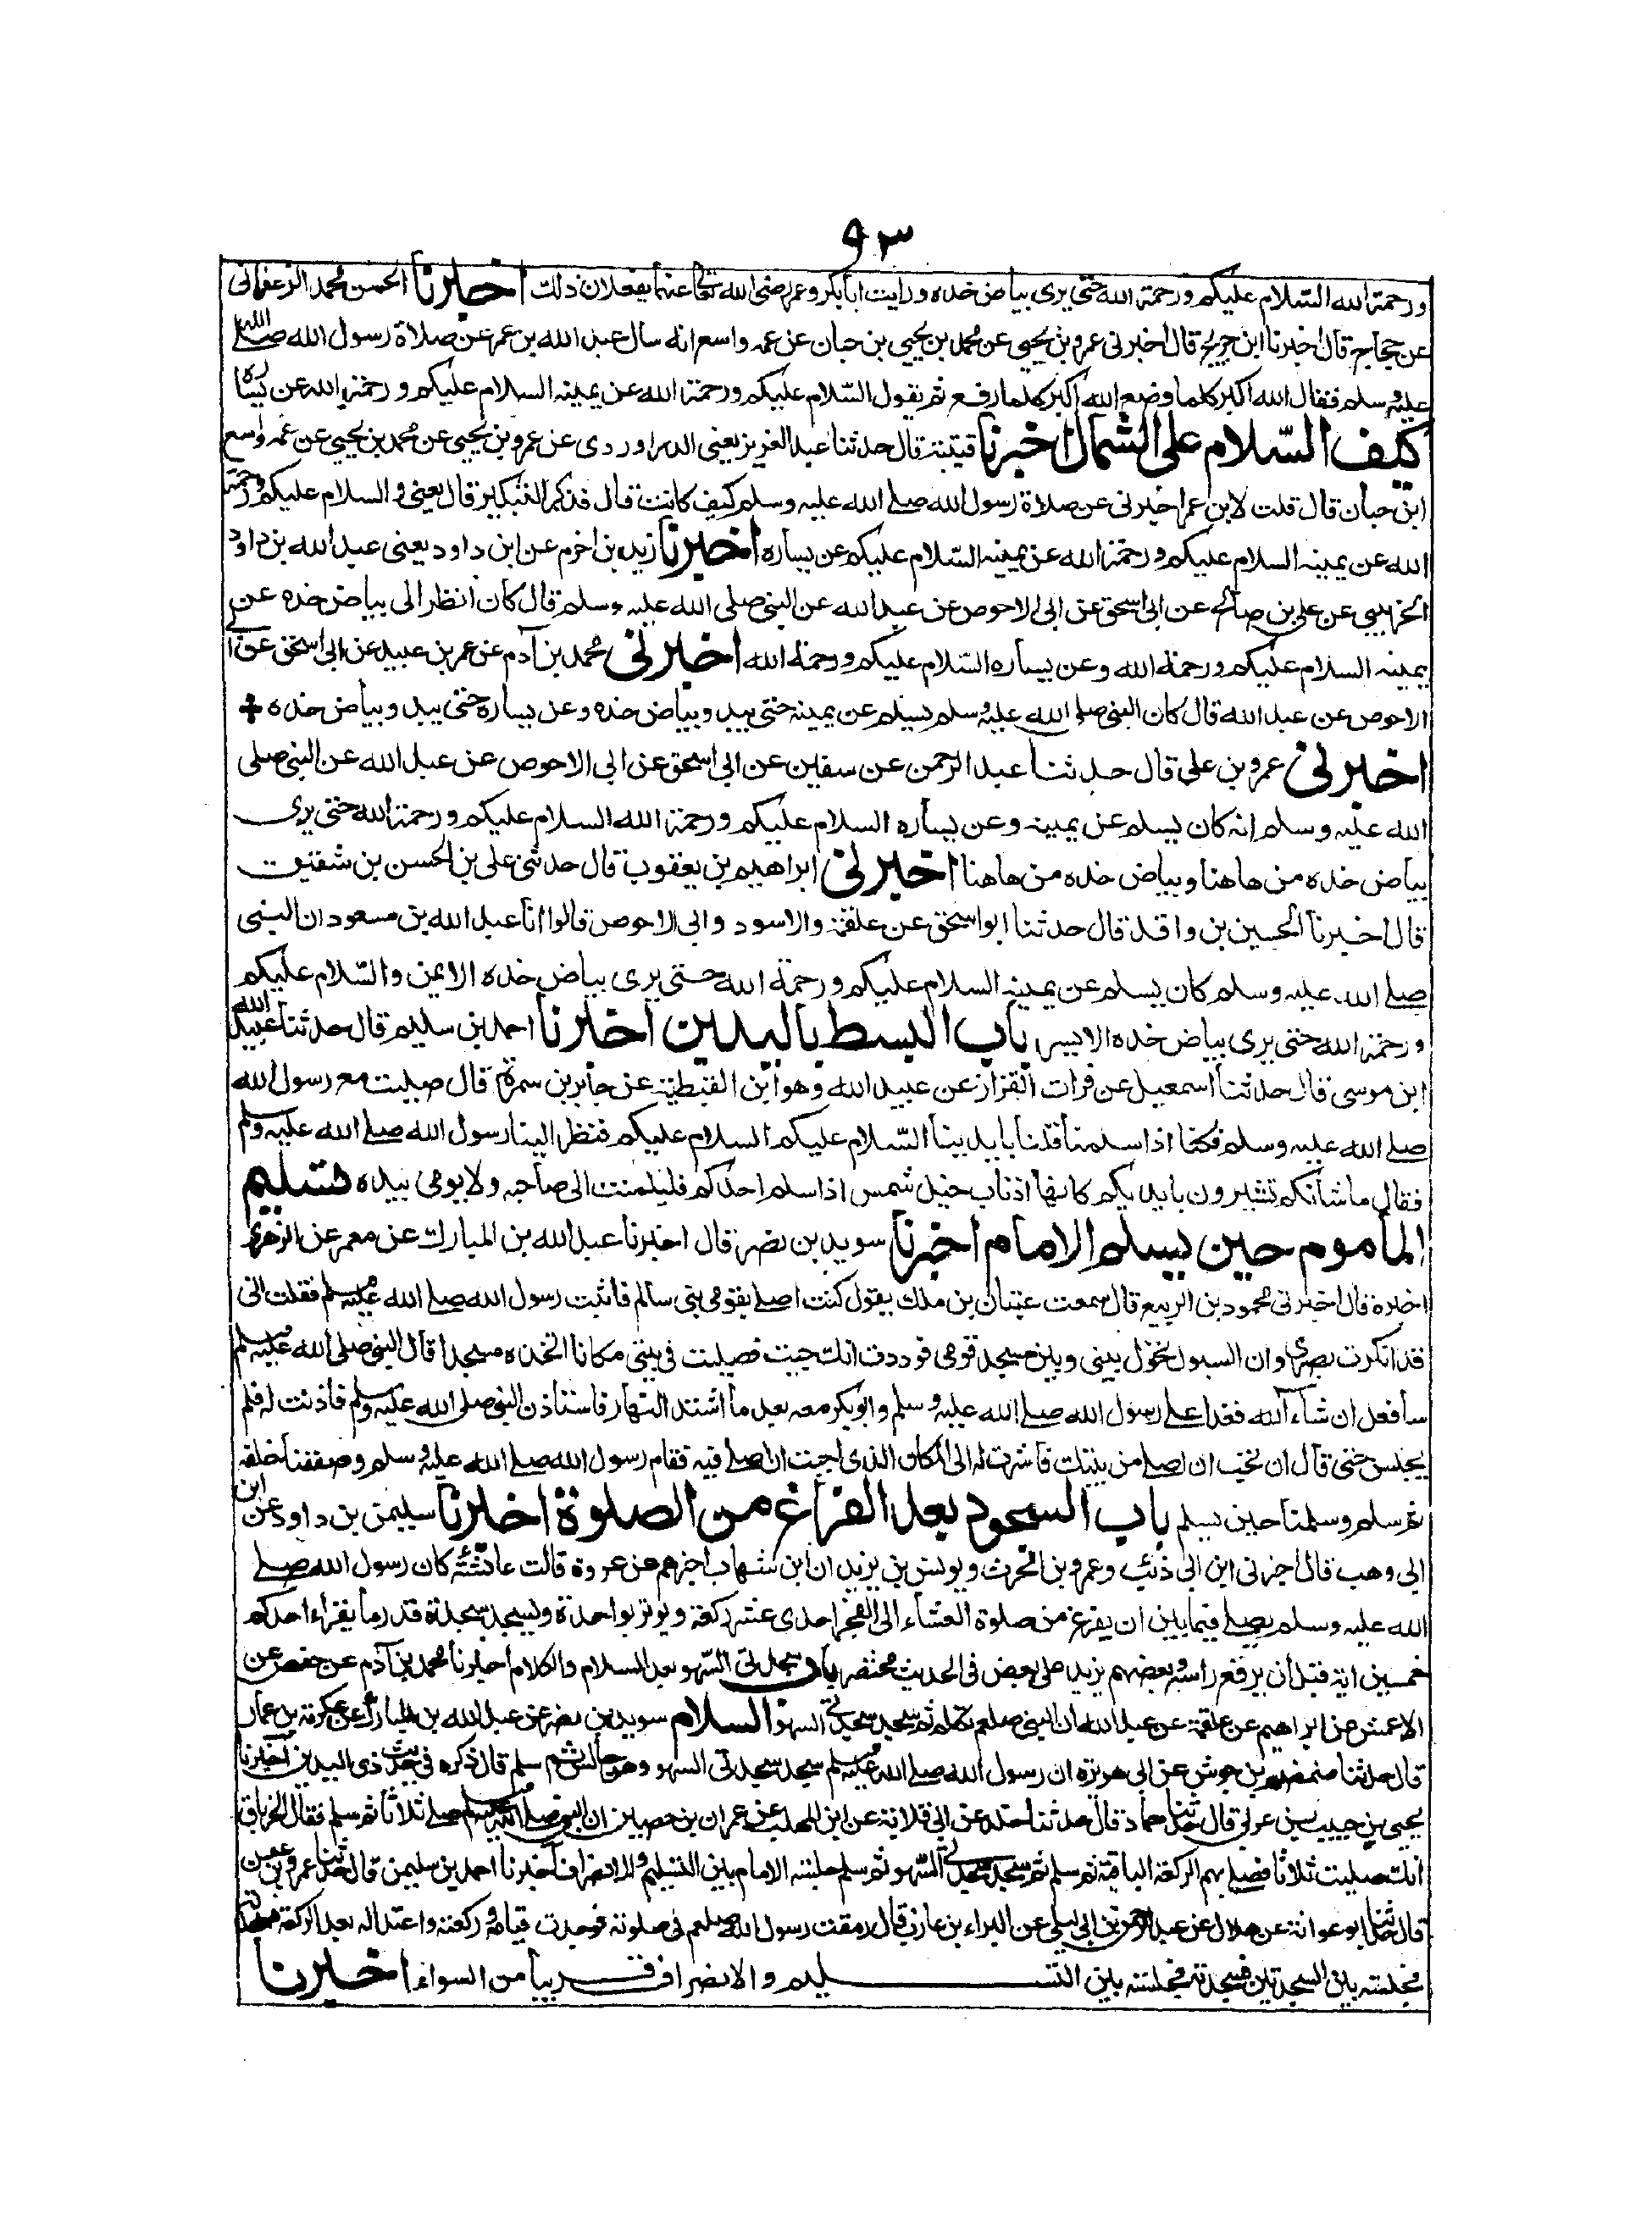 ٩٣
ورحمة الله السلام عليكم ورحمة الله حتى يرى بياض خده ورايت ابا بكر وعمر رضى الله تعالى عنهما يفعلان ذلك اخبرنا الحسن محمد الزعفرانى
عن حجاج قال اخبرنا ابن جريج قال اخبرنى عمرو بن يحيى عن محمد بن يحيى بن حبان عن عمه واسع انه سال عبد الله بن عمر عن صلاة رسول الله صلى الله
عليه وسلم فقال الله اكبر كلما وضع الله اكبر كلما رفع ثم يقول السلام عليكم ورحمة الله عن يمينه السلام عليكم ورحمة الله عن يساره
كيف السلام على الشمال اخبرنا قتيبة قال حدثنا عبد العزيز يعنى الدراوردى عن عمرو بن يحيى عن محمد بن يحيى عن عمه واسع
ابن حبان قال قلت لابن عمر اخبرنى عن صلاة رسول الله صلى الله عليه وسلم كيف كانت قال فذكر التكبير قال يعنى والسلام عليكم ورحمة
الله عن يمينه السلام عليكم ورحمة الله عن يمينه السلام عليكم عن يساره اخبرنا زيد بن اخزم عن ابن داود يعنى عبد الله بن داود
الخريبى عن على بن صالح عن ابى اسحق عن ابى الاحوص عن عبد الله عن النبى صلى الله عليه وسلم قال كان انظر الى بياض خده عن
يمينه السلام عليكم ورحمة الله وعن يساره السلام عليكم ورحمة الله اخبرنى محمد بن آدم عن عمر بن عبيد عن ابى اسحق عن ا
الاحوص عن عبد الله قال كان النبى صلى الله عليه وسلم يسلم عن يمينه حتى يبدو بياض خده وعن يساره حتى يبدو بياض خده
اخبرنى عمرو بن على قال حدثنا عبد الرحمن عن سفين عن ابى اسحق عن ابى الاحوص عن عبد الله عن النبى صلى
الله عليه وسلم انه كان يسلم عن يمينه وعن يساره السلام عليكم ورحمة الله السلام عليكم ورحمة الله حتى يرى
بياض خده من هاهنا وبياض خده من هاهنا اخبرنى ابراهيم بن يعقوب قال حدثنى على بن الحسن بن شقيق
قال اخبرنا الحسين بن واقد قال حدثنا ابو اسحق عن علقمة والاسود وابى الاحوص قالوا انا عبد الله بن مسعود ان النبى
صلى الله عليه وسلم كان يسلم عن يمينه السلام عليكم ورحمة الله حتى يرى بياض خده الايمن والسلام عليكم
ورحمة الله حتى يرى بياض خده الايسر باب البسط باليدين اخبرنا احمد بن سليم قال حدثنا عبيد الله
ابن موسى قال حدثنا اسمعيل عن فرات القزاز عن عبيد الله وهو ابن القبطية عن جابر بن سمرة قال صليت مع رسول الله
صلى الله عليه وسلم فكنا اذا سلمنا قلنا بايدينا السلام عليكم السلام عليكم فنظر الينا رسول الله صلى الله عليه وسلم
فقال ما شانكم تشيرون بايديكم كانها اذناب خيل شمس اذا سلم احدكم فليلتفت الى صاحبه ولا يومى بيده تسليم
الماموم حين يسلم الامام اخبرنا سويد بن نصر قال اخبرنا عبد الله بن المبارك عن معمر عن الزهرى
اخبره قال اخبرنى محمود بن الربيع قال سمعت عتبان بن ملك يقول كنت اصلى بقومى بنى سالم فاتيت رسول الله صلى الله عليه وسلم فقلت انى
قد انكرت بصرى وان السيول تحول بينى وبين مسجد قومى فوددت انك جيت فصليت فى بيتى مكانا اتخذه مسجدا قال النبى صلى الله عليه وسلم
سافعل ان شاء الله فغدا على رسول الله صلى الله عليه وسلم وابو بكر معه بعد ما اشتد النهار فاستاذن النبى صلى الله عليه وسلم فاذنت له فلم
يجلس حتى قال ان تحب ان اصلى من بيتك فاشرت له الى المكان الذى احببت ان اصلى فيه فقام رسول الله صلى الله عليه وسلم وصففنا خلفه
ثم سلم وسلمنا حين يسلم باب السجود بعد الفراغ من الصلوة اخبرنا سليمن بن داود عن ابن
ابى وهب قال اخبرنى ابن ابى ذئب وعمرو بن الحرث ويونس بن يزيد ان ابن شهاب اخبرهم عن عروة قالت عائشة كان رسول الله صلى
الله عليه وسلم يصلى فيما بين ان يفرغ من صلوة العشاء الى الفجر احدى عشر ركعة ويوتر بواحدة ويسجد سجدة قدر ما يقراء احدكم
خمسين اية قبل ان يرفع راسه وبعضهم يزيد على بعض فى الحديث مختصر باب سجدتى السهو بعد السلام والكلام اخبرنا محمد بن آدم عن حفص عن
الاعمش عن ابراهيم عن علقمة عن عبد الله ان النبى صلعم تكلم ثم سجد سجدتى السهو السلام سويد بن نصر عن عبد الله بن المبارك عن عكرمة بن عمار
قال حدثنا ضمضم بن جوش عن ابى هريرة ان رسول الله صلى الله عليه وسلم سجد سجدتى السهو وهو جالس ثم سلم قال ذكره فى حديث ذى اليدين اخبرنا
يحيى بن حبيب بن عربى قال حدثنا حماد قال حدثنا خالد عن ابى قلابة عن ابن المهلب عن عمران بن حصين ان النبى صلى الله عليه وسلم صلى ثلاثا ثم سلم فقال الخرباق
انك صليت ثلاثا فصلى بهم الركعة الباقية ثم سلم ثم سجد سجدتى السهو ثم سلم جلسة الامام بين التسليم والانصراف اخبرنا احمد بن سليمن قال حدثنا عمرو بن عون
قال حدثنا ابو عوانة عن هلال عن عبد الرحمن بن ابى ليلى عن البراء بن عازب قال رمقت رسول الله صلعم فى صلوته فوجدت قيامه وركعته واعتداله بعد الركعة فسجدته
فجلسته بين السجدتين فسجدته فجلسته بين التسليم والانصراف قريبا من السواء اخبرنا